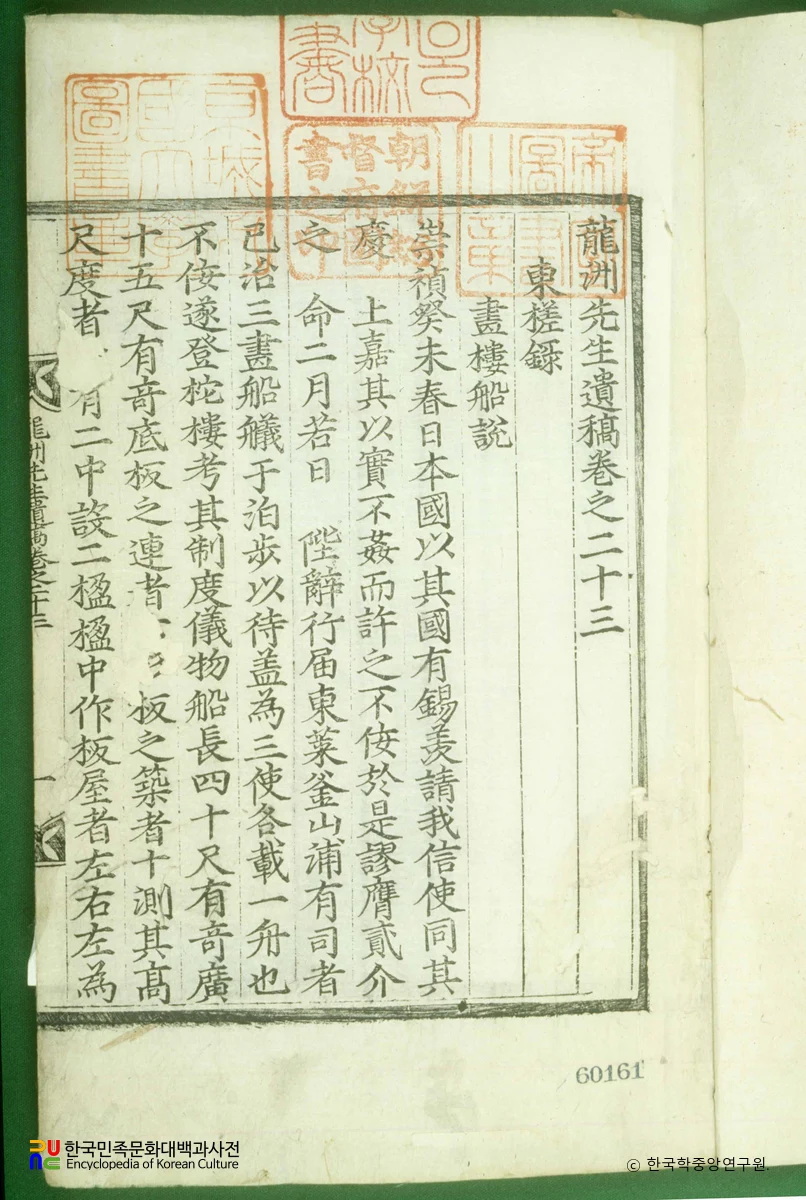 龍洲先生遺稿卷之二十三
東槎錄
畫樓船說
崇禎癸未春日本國以其國有錫羨請我信使同其
慶 上嘉其以實不姦而許之不侫於是謬膺貳介
之 命二月若日 陛辭行届東萊釜山浦有司者
已治三畫船艤于泊步以待盖為三使各載一舟也
不侫遂登柁樓考其制度儀物船長四十尺有奇廣
十五尺有奇底板之連者 板之築者十測其高
尺度者 有二中設二楹楹中作板屋者左右左為
龍洲先生遺稿卷之二十三
一
朝鮮總
督府圖
書之印
60161
한국민족문화대백과사전
Encyclopedia of Korean Culture
ⓒ 한국학중앙연구원